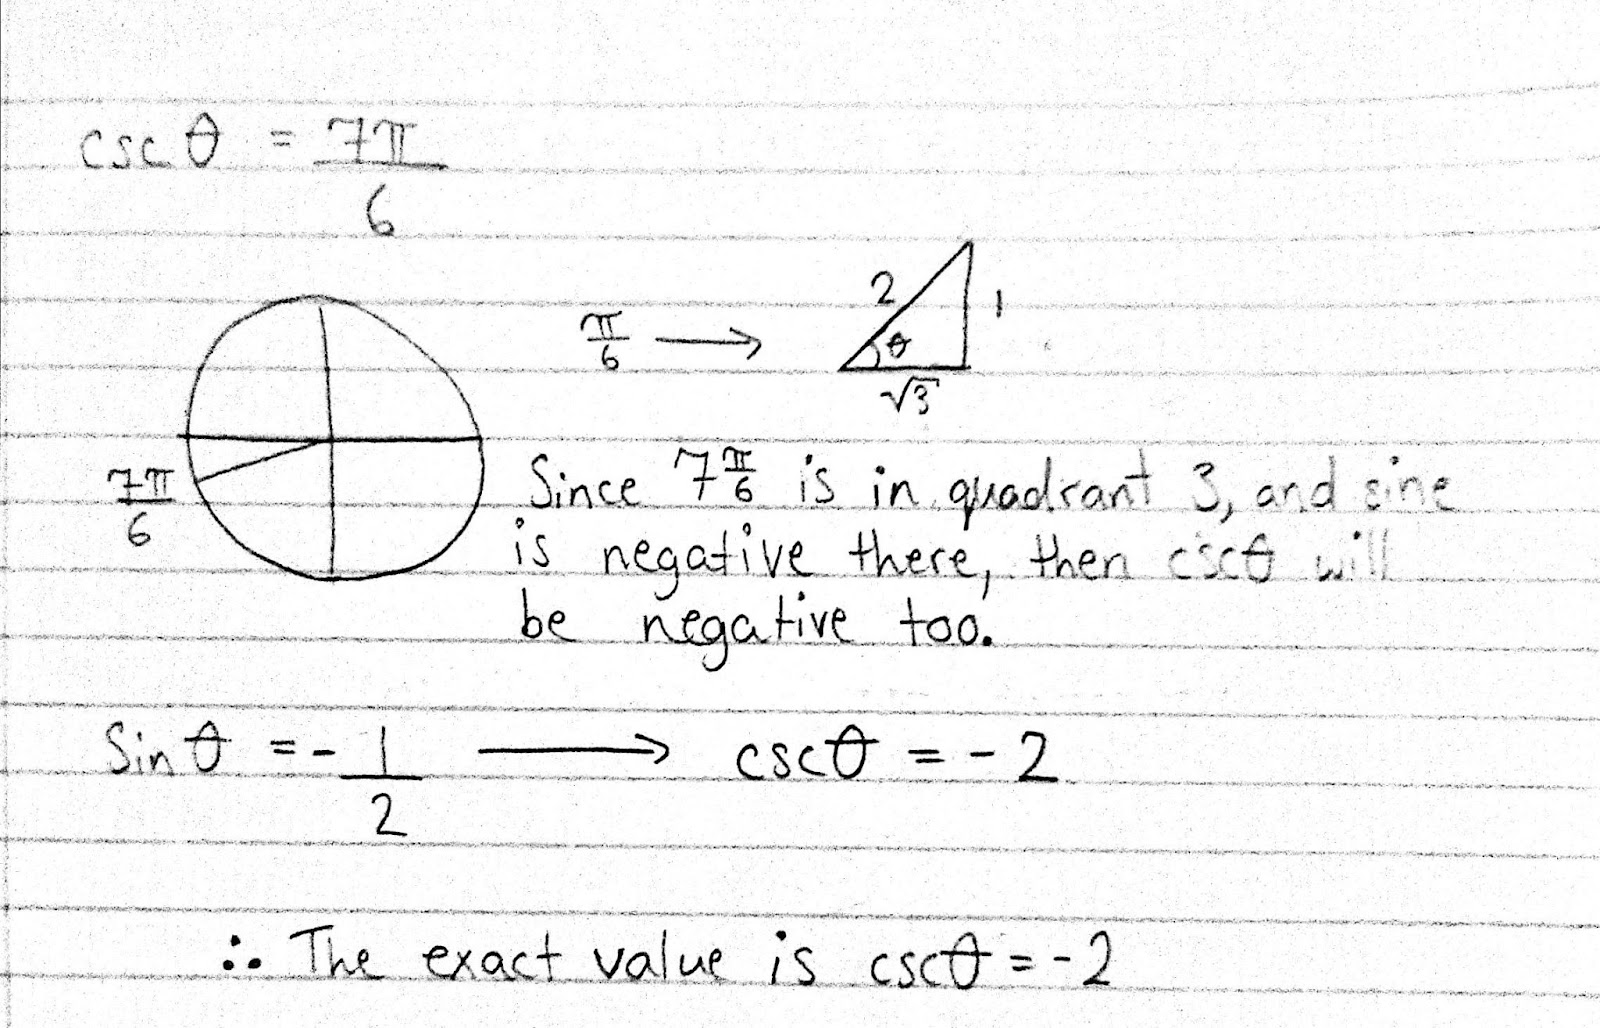 csc θ = 7π/6
π/6 → 2 1
θ
√3
7π/6
Since 7π/6 is in quadrant 3, and sine
is negative there, then cscθ will
be negative too.
Sin θ = - 1/2 → cscθ = - 2
∴ The exact value is cscθ = - 2